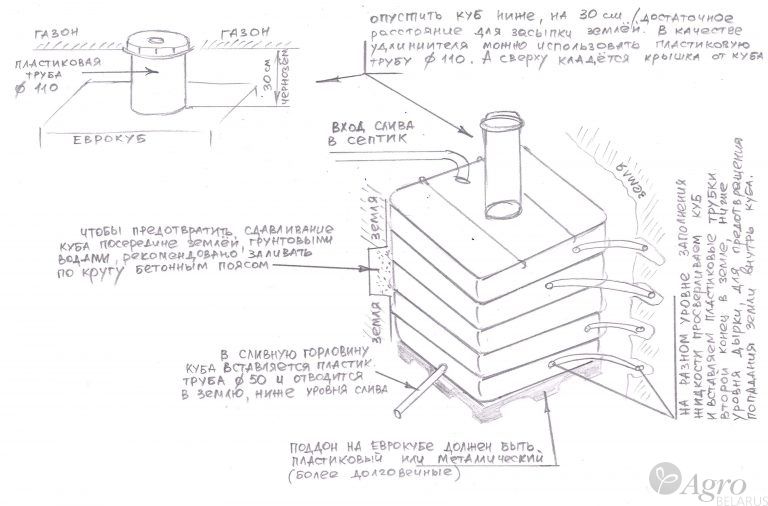 ГАЗОН
ГАЗОН
ПЛАСТИКОВАЯ
ТРУБА
ф 110
30 см
ЧЕРНОЗЁМ
ЕВРОКУБ
ОПУСТИТЬ КУБ НИЖЕ, НА 30 СМ. /ДОСТАТОЧНОЕ
РАССТОЯНИЕ ДЛЯ ЗАСЫПКИ ЗЕМЛЁЙ. В КАЧЕСТВЕ
УДЛИНИТЕЛЯ МОЖНО ИСПОЛЬЗОВАТЬ ПЛАСТИКОВУЮ
ТРУБУ ф 110. А СВЕРХУ КЛАДЁТСЯ КРЫШКА ОТ КУБА
ВХОД СЛИВА
В СЕПТИК
земля
ЧТОБЫ ПРЕДОТВРАТИТЬ СДАВЛИВАНИЕ
КУБА ПОСЕРЕДИНЕ ЗЕМЛЁЙ, ГРУНТОВЫМИ
ВОДАМИ, РЕКОМЕНДОВАНО ЗАЛИВАТЬ
ПО КРУГУ БЕТОННЫМ ПОЯСОМ
ЗЕМЛЯ
ЗЕМЛЯ
В СЛИВНУЮ ГОРЛОВИНУ
КУБА ВСТАВЛЯЕТСЯ ПЛАСТИК.
ТРУБА ф 50 И ОТВОДИТСЯ
В ЗЕМЛЮ, НИЖЕ УРОВНЯ СЛИВА
ПОДДОН НА ЕВРОКУБЕ ДОЛЖЕН БЫТЬ
ПЛАСТИКОВЫЙ ИЛИ МЕТАЛЛИЧЕСКИЙ
(БОЛЕЕ ДОЛГОВЕЧНЫЕ)
НА РАЗНОМ УРОВНЕ ЗАПОЛНЕНИЯ
ЖИДКОСТИ ПРОСВЕРЛИВАЕМ КУБ
И ВСТАВЛЯЕМ ПЛАСТИКОВЫЕ ТРУБКИ.
ВТОРОЙ КОНЕЦ В ЗЕМЛЕ, НИЖЕ
УРОВНЯ ДЫРКИ, ДЛЯ ПРЕДОТВРАЩЕНИЯ
ПОПАДАНИЯ ЗЕМЛИ ВНУТРЬ КУБА.
Agro
BELARUS